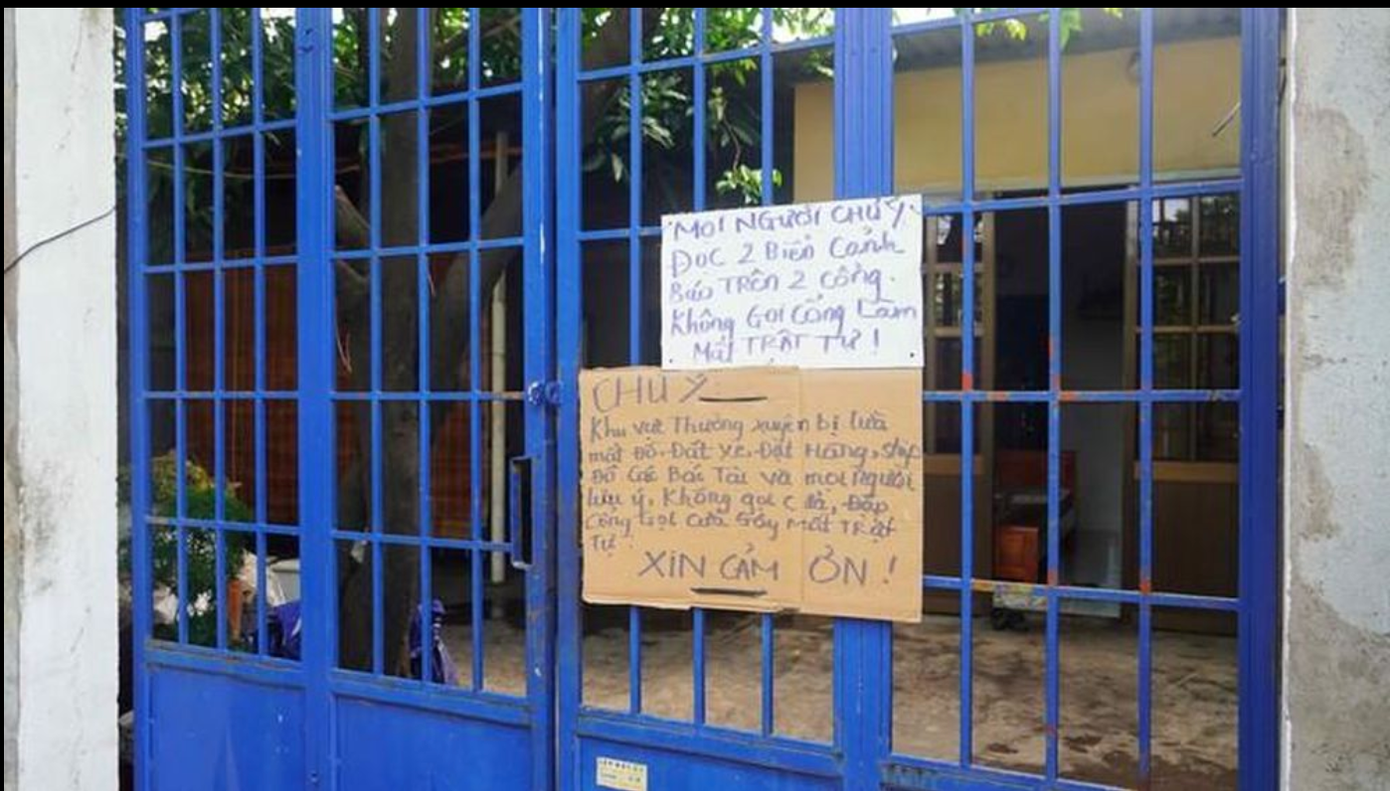 MỌI NGƯỜI CHÚ Ý.
ĐỌC 2 Biển Cảnh
Báo TRÊN 2 cổng.
Không Gọi Cổng Làm
MấT TRẬT TỰ !
CHÚ Ý
Khu vực Thường xuyên bị lừa
mất đồ. Đặt xe. Đặt Hàng, ship
Đồ Các Bác Tài và mọi người
lưu ý. Không gọi cửa, Đập
cổng Gọi cửa Gây mất TRẬT
Tự.
XIN CẢM ƠN !